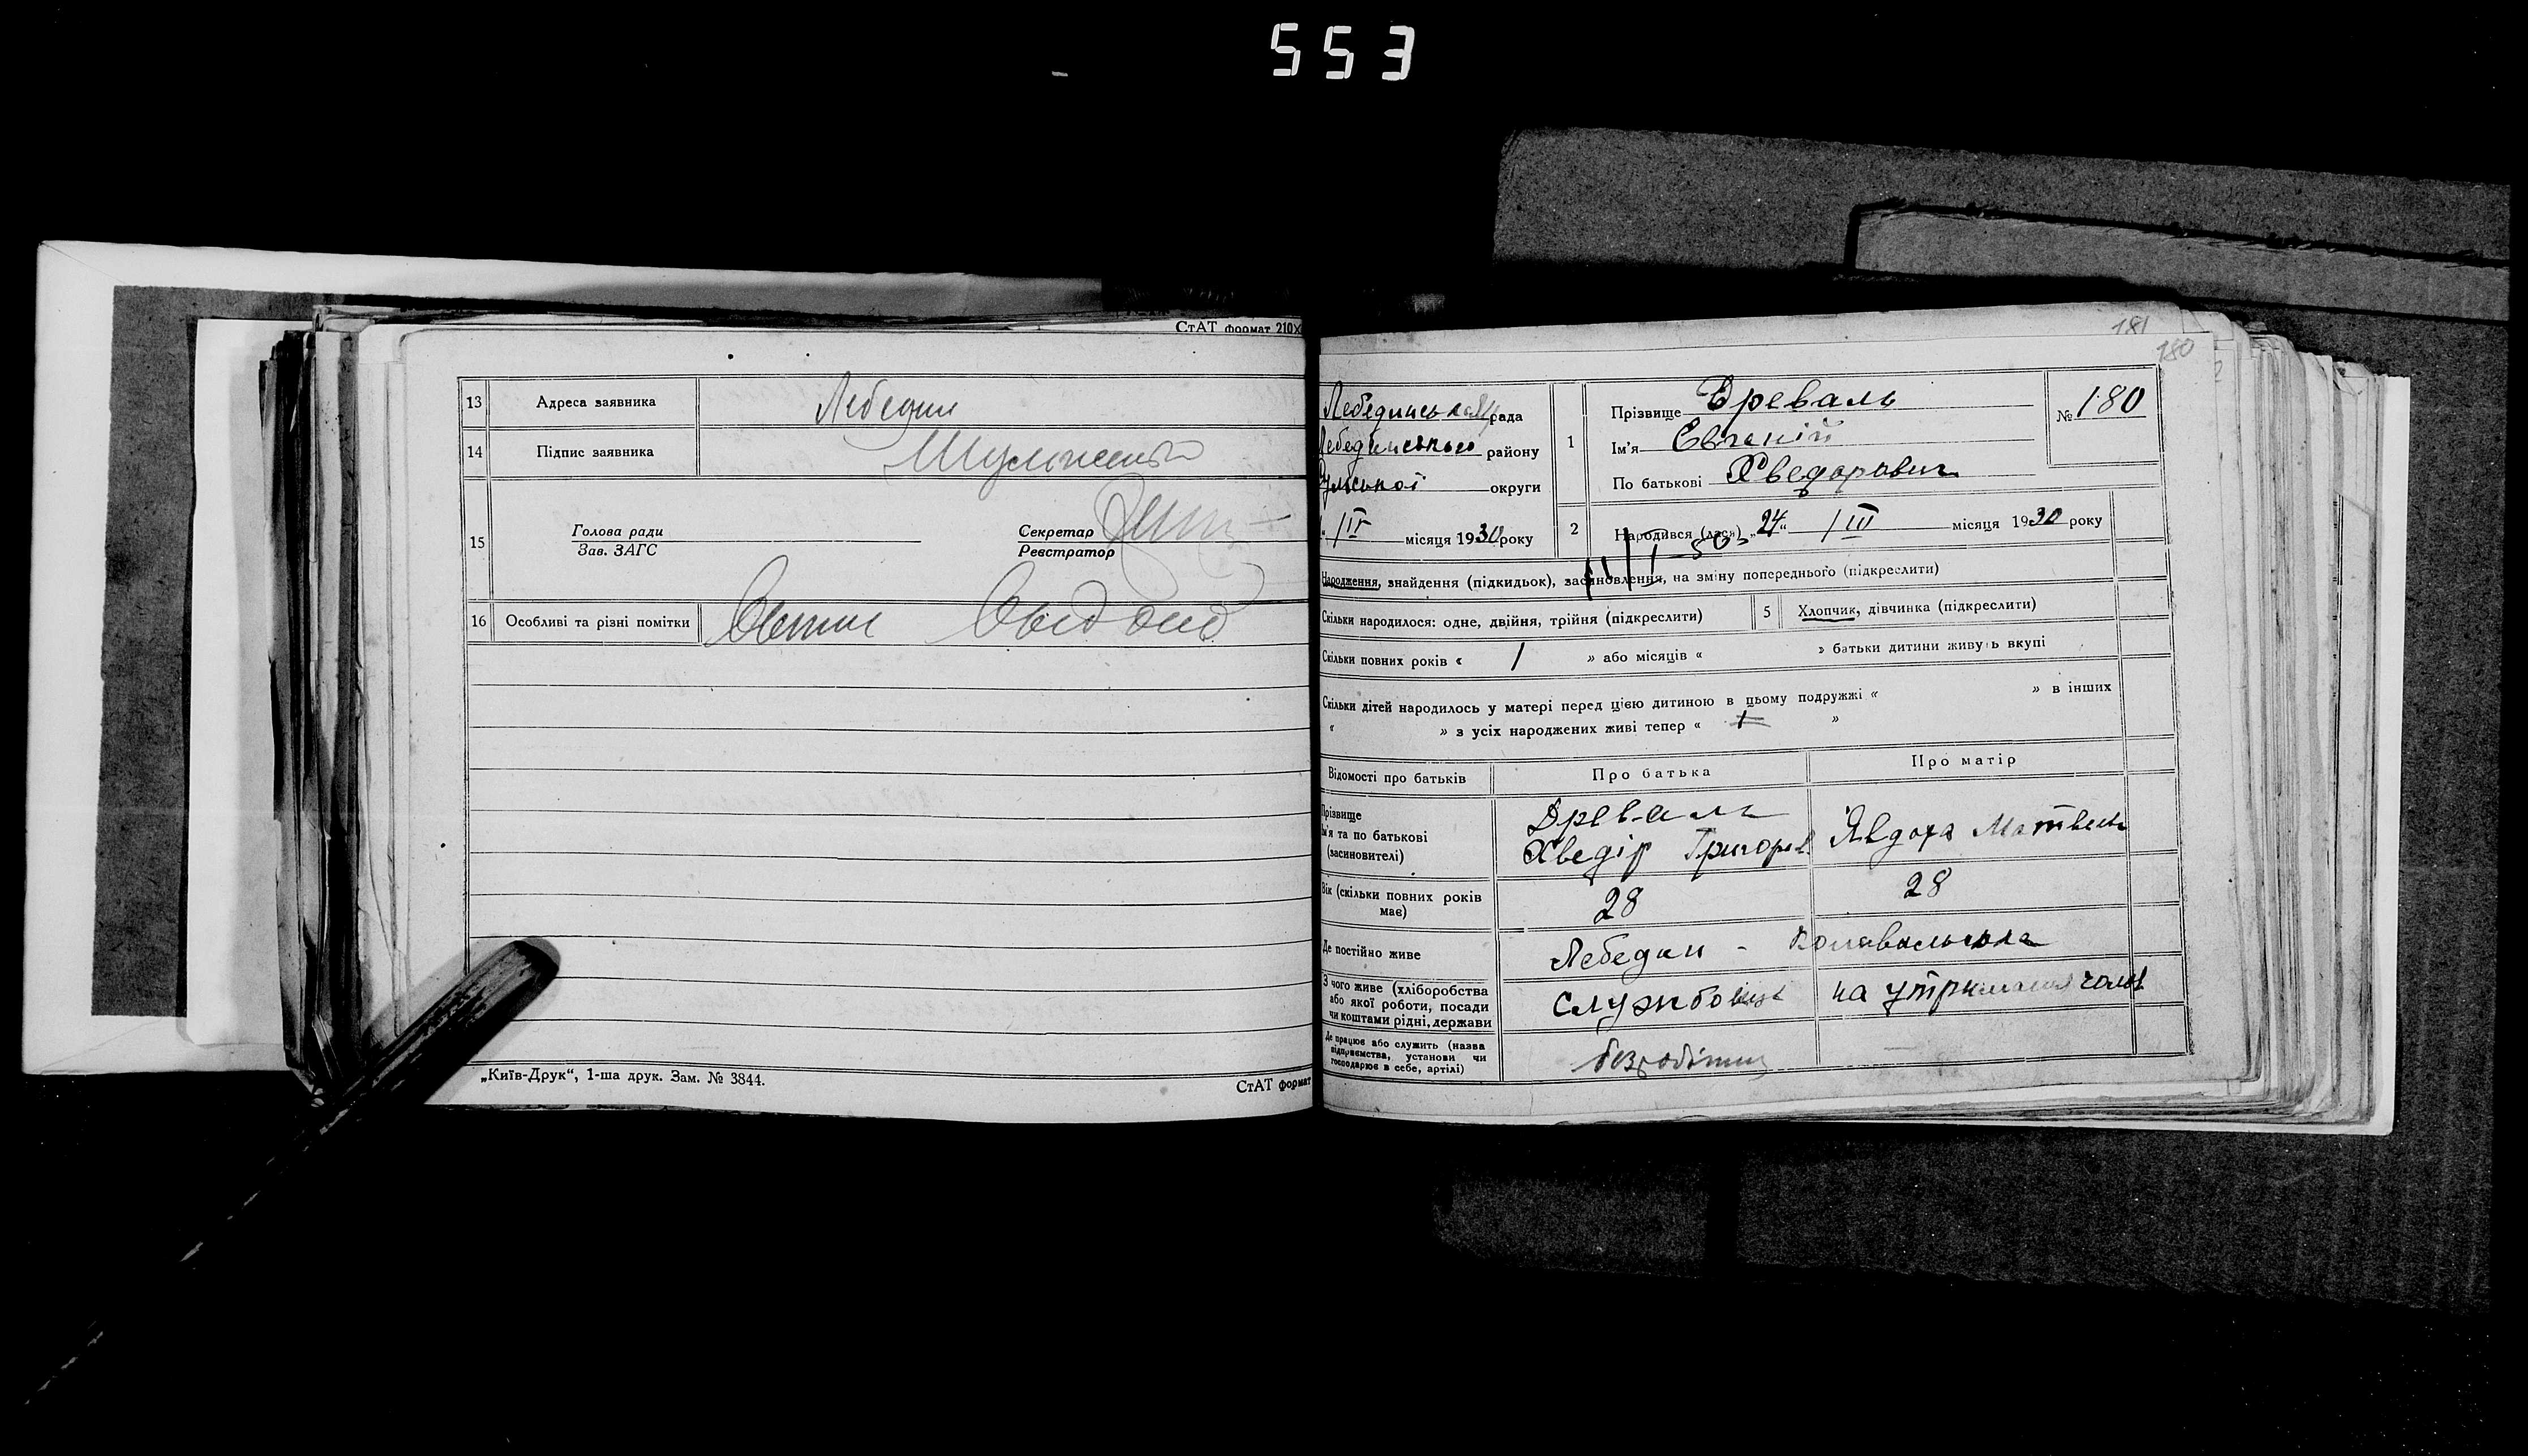 553
СтАТ формат 210×
13 Адреса заявника Лебедин
14 Підпис заявника
15 Голова ради
Зав. ЗАГС
Секретар
Реєстратор
16 Особливі та різні помітки
„Київ-Друк“, 1-ша друк. Зам. № 3844.
СтАТ формат
181
180
Лебединська рада
Лебединського району
округи
/IV місяця 1930 року
1 Прізвище Древаль
Ім'я Євгеній
По батькові Хведорович
№ 180
2 Народився (лась) „24“ /III місяця 1930 року
11/I-50
Народження, знайдення (підкидьок), засиновлення, на зміну попереднього (підкреслити)
Скільки народилося: одне, двійня, трійня (підкреслити)
5 Хлопчик, дівчинка (підкреслити)
Скільки повних років « 1 » або місяців « » батьки дитини живуть вкупі
Скільки дітей народилось у матері перед цією дитиною в цьому подружжі « » в інших
« » з усіх народжених живі тепер « »
Відомості про батьків
Про батька
Про матір
Прізвище
Ім'я та по батькові
(засиновителі)
Древаль
Хведір Григоров
Явдоха Матвеев
Вік (скільки повних років
має)
28
28
Де постійно живе
Лебедин -
З чого живе (хліборобства
або якої роботи, посади
чи коштами рідні, держави
службовець
на утриманні чолов
Де працює або служить (назва
підприємства, установи чи
господарює в себе, артілі)
безробітний